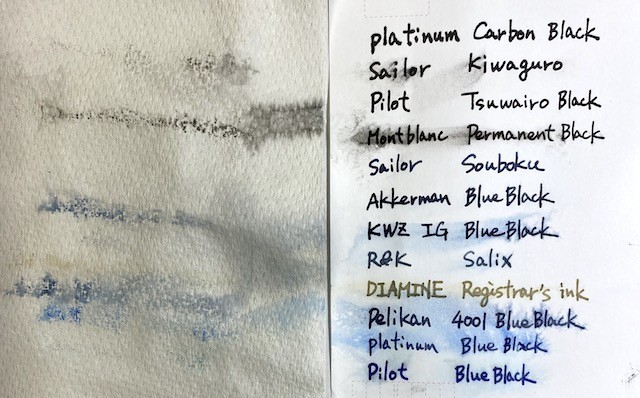 platinum Carbon Black
Sailor Kiwaguro
Pilot Tsuwairo Black
Montblanc Permanent Black
Sailor Souboku
Akkerman Blue Black
KWZ IG Blue Black
R&K Salix
DIAMINE Registrar's ink
Pelikan 4001 Blue Black
platinum Blue Black
Pilot Blue Black